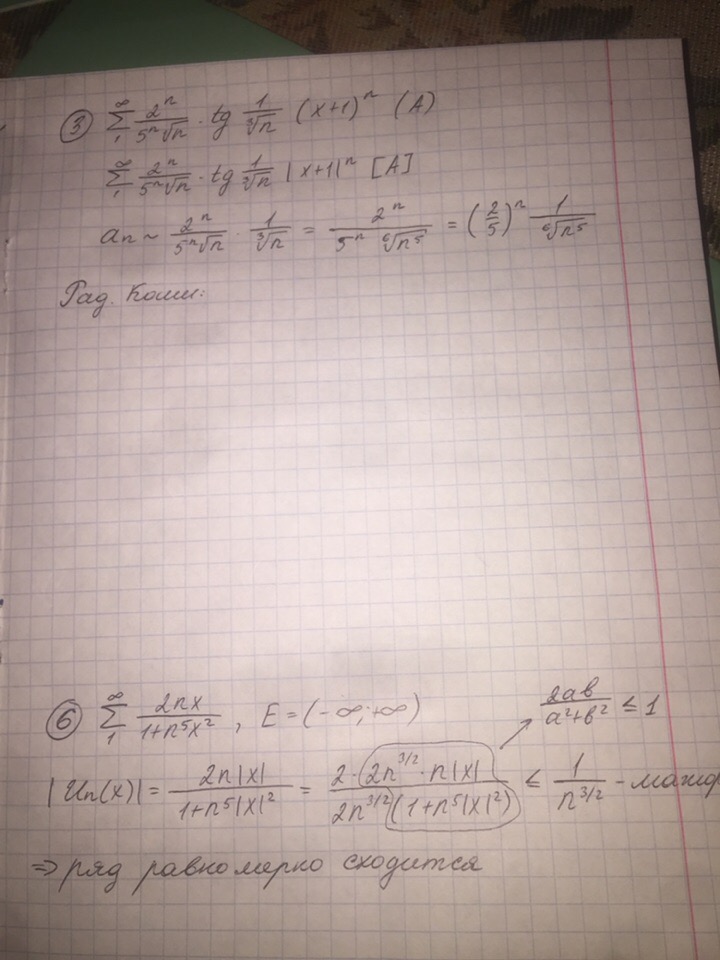 ③ ∑₁^∞ 2ⁿ/(5ⁿ√n) · tg 1/∛n (x+1)ⁿ (A)
∑₁^∞ 2ⁿ/(5ⁿ√n) · tg 1/∛n |x+1|ⁿ [A]
aₙ ~ 2ⁿ/(5ⁿ√n) · 1/∛n = 2ⁿ/(5ⁿ ⁶√n⁵) = (2/5)ⁿ 1/⁶√n⁵
Рад. Коши:
⑥ ∑₁^∞ 2nx/(1+n⁵x²), E = (-∞;+∞) 2ab/(a²+b²) ≤ 1
|Uₙ(x)| = 2n|x|/(1+n⁵|x|²) = 2·(2n^(3/2)·n|x|)/(2n^(3/2)(1+n⁵|x|²)) ≤ 1/n^(3/2) - мажор
⇒ ряд равномерно сходится